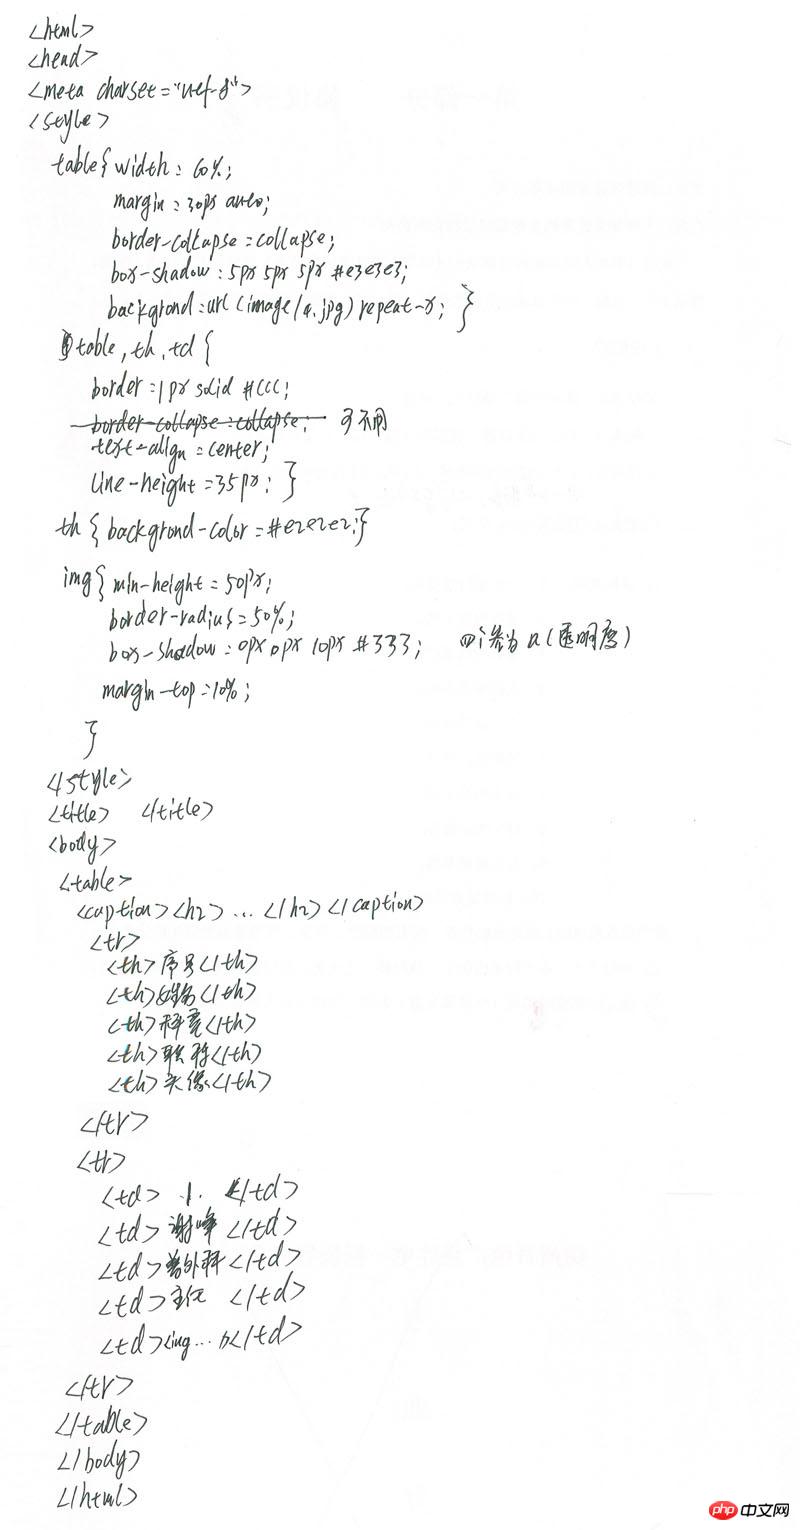 <html>
<head>
<meta charset="utf-8">
<style>
table{ width: 60%;
margin: 30px auto;
border-collapse: collapse;
box-shadow: 5px 5px 5px #e3e3e3;
backgrond: url(image/a.jpg) repeat-x; }
table, th, td {
border: 1px solid #CCC;
border-collapse: collapse; 可不用
text-align: center;
line-height: 35px; }
th { backgrond-color: #e2e2e2; }
img{ min-height: 50px;
border-radius: 50%;
box-shadow: 0px 0px 10px #333; a(透明度)
margin-top: 10%;
}
</style>
<title> </title>
<body>
<table>
<caption><h2>...</h2></caption>
<tr>
<th>序号</th>
<th>姓名</th>
<th>科室</th>
<th>职称</th>
<th>头像</th>
</tr>
<tr>
<td> 1. </td>
<td>谢峰</td>
<td>普外科</td>
<td>主任 </td>
<td><img... /></td>
</tr>
</table>
</body>
</html>
php 中文网